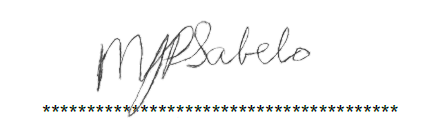 MJPSabelo
****************************************